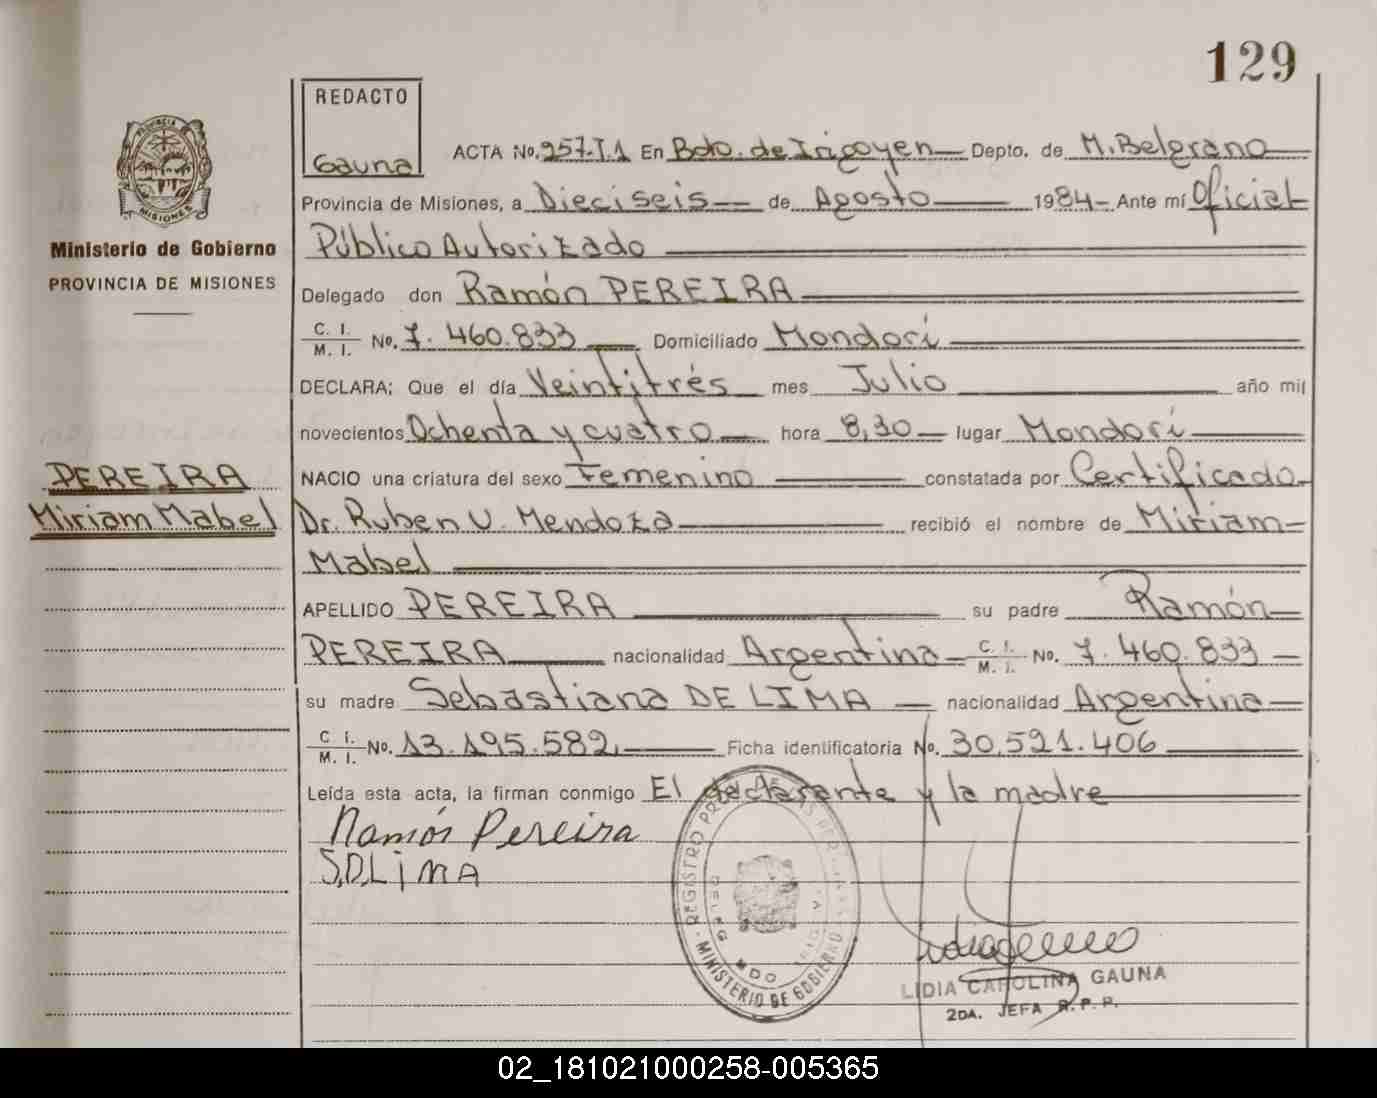 129
REDACTO
Gauna
PROVINCIA
MISIONES
Ministerio de Gobierno
PROVINCIA DE MISIONES
PEREIRA
Miriam Mabel
ACTA No. 257.T.1 En Bdo. de Irigoyen Depto. de M. Belgrano
Provincia de Misiones, a Dieciseis de Agosto 1984 Ante mí Oficial
Público Autorizado
Delegado don Ramón PEREIRA
C. I. M. I. No. 7.460.833 Domiciliado Mondorí
DECLARA: Que el día Veintitrés mes Julio año mil
novecientos Ochenta y cuatro hora 8,30 lugar Mondorí
NACIO una criatura del sexo Femenino constatada por Certificado
Dr. Ruben V. Mendoza recibió el nombre de Miriam
Mabel
APELLIDO PEREIRA su padre Ramón
PEREIRA nacionalidad Argentina C. I. M. I. No. 7.460.833
su madre Sebastiana DE LIMA nacionalidad Argentina
C. I. M. I. No. 13.195.582 Ficha identificatoria No. 30.521.406
Leída esta acta, la firman conmigo El declarante y la madre
Ramón Pereira
S.D.LiMA
REGISTRO
MINISTERIO DE GOBIERNO
LIDIA CAROLINA GAUNA
2DA. JEFA R.P.P.
02_181021000258-005365